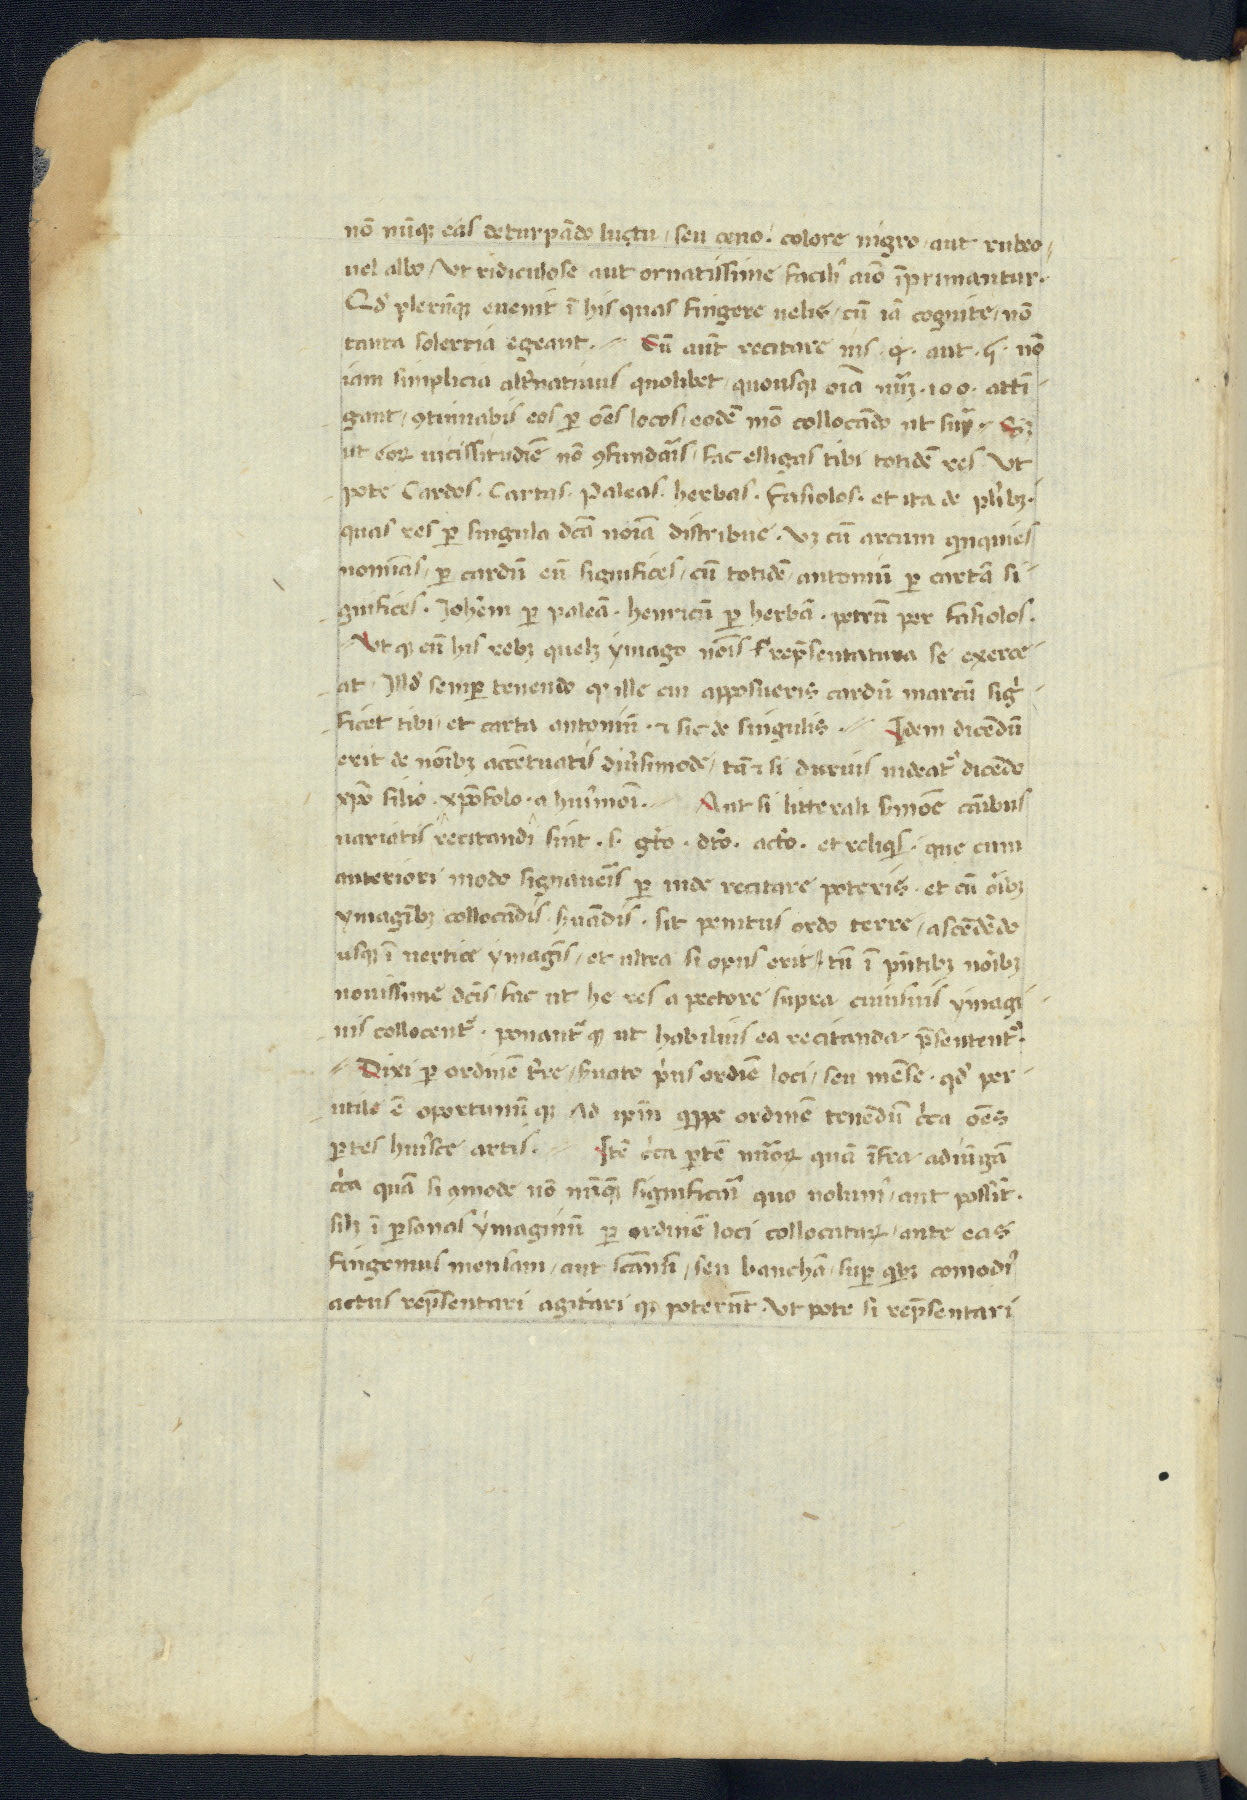 nō nūqꝫ eas deturpādo luctu / seu ceno / colore nigro / aut rubeo /
uel albo / Ut ridiculose aut ornatissime facilꝰ aīo īprimantur.
Qd̄ plerūqꝫ euenit ī his quas fingere uelis / cū iā cognite / nō
tanta solertia egeant. Sū aūt recitare uis . 4 . aut . 5 . nō
iam simplicia altr̄natiuus quolibet / quousqꝫ oīa nūꝫ . 100 . atti
gant / ꝯtinuabis eos ꝑ ōes locos / eodē mō collocādo ut supͣ. Sꝫ
ut eoꝝ uicissitudiē nō ꝯfundaīs / fac elligas tibi totidē res Ut
pote Cardos . Cartas . Paleas . herbas . Fasiolos . et ita de plībꝫ.
quas res ꝑ singula dc̄a noīa distribue . Vꝫ cū arcum quinquies
nomīas / ꝑ cardū eū significes / cū totidē / antoniū ꝑ cartā si
gnifices . Joh̄em ꝑ paleā . henricū ꝑ herbā . petrū per fasiolos .
Ut qꝫ cū his rebꝫ quelꝫ ymago noīs repn̄sentatura se exerce
at . Illd̄ semꝑ tenendo ꝙ ille cui apposueris cardū marcū sigi
ficet tibi / et carta antoniū . ⁊ sic de singulis . Idem dicēdū
erit de noībꝫ accētuatis diuīsimode / tā ⁊ si durius uideatᷣ dicēdo
xp̄o filio . xp̄ofolo . a huiꝰmoī . Aut si litterali sermōe casibus
uariatis recitandi sint . s . gt̄o . dt̄o . act̄o . et reliqͥs . que cum
anteriori modo signaueīs ꝑ inde recitare poteris . et cū oībꝫ
ymagībꝫ collocādis . suādis . sit penitus ordo terre / ascēdēdo
usqꝫ ī uertice ymagīs / et ultra si opus erit / tū ī pn̄tibꝫ noībꝫ
nouissime dc̄is / fac ut he res a pectore supra cuiusuis ymagi
nis collocentᷣ . ponantᷣ qꝫ ut habilius ea recitanda pn̄sententᷣ.
Dixi ꝑ ordinē tr̄re / suato pͥus ordiē loci / seu mēse . qd̄ per
utile ē oportunū qꝫ Ad ip̄m quippe ordinē tenēdū cͥca oēs
partes huiusce artis . Itē cͥca partē maioꝝ quā īfra adiūgā
cͥca quā si ꝯmode nō nūquā significamꝰ quo uolumꝰ / aut possit.
silꝫ ī personas ymaginū ꝑ ordinē loci collocataꝝ / ante eas
fingemus mensam / aut scānū / seu banchā / suꝑ qͥbꝫ comodiꝰ
actus repn̄sentari agitari qꝫ poterūt . Ut pote si repn̄sentari